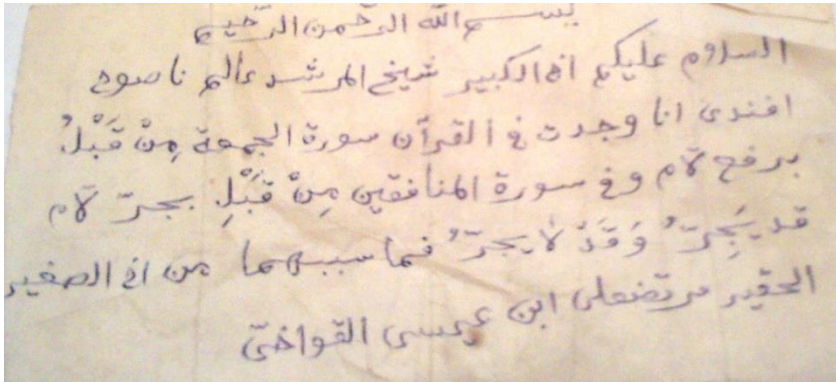 بسم الله الرحمن الرحيم
السلام عليكم اخ الكبير شيخ المرشد عالم ناصوح
افندى انا وجدت فى القرآن سورة الجمعة مِنْ قَبْلُ
برفع لام وفى سورة المنافقين مِنْ قَبْلِ بجرّ لام
قد يَجِرُّ وَقَدْ لا يجرُّ فما سببهما من اخ الصغير
الحقير مرتضعلى ابن عيسى القواخىّ